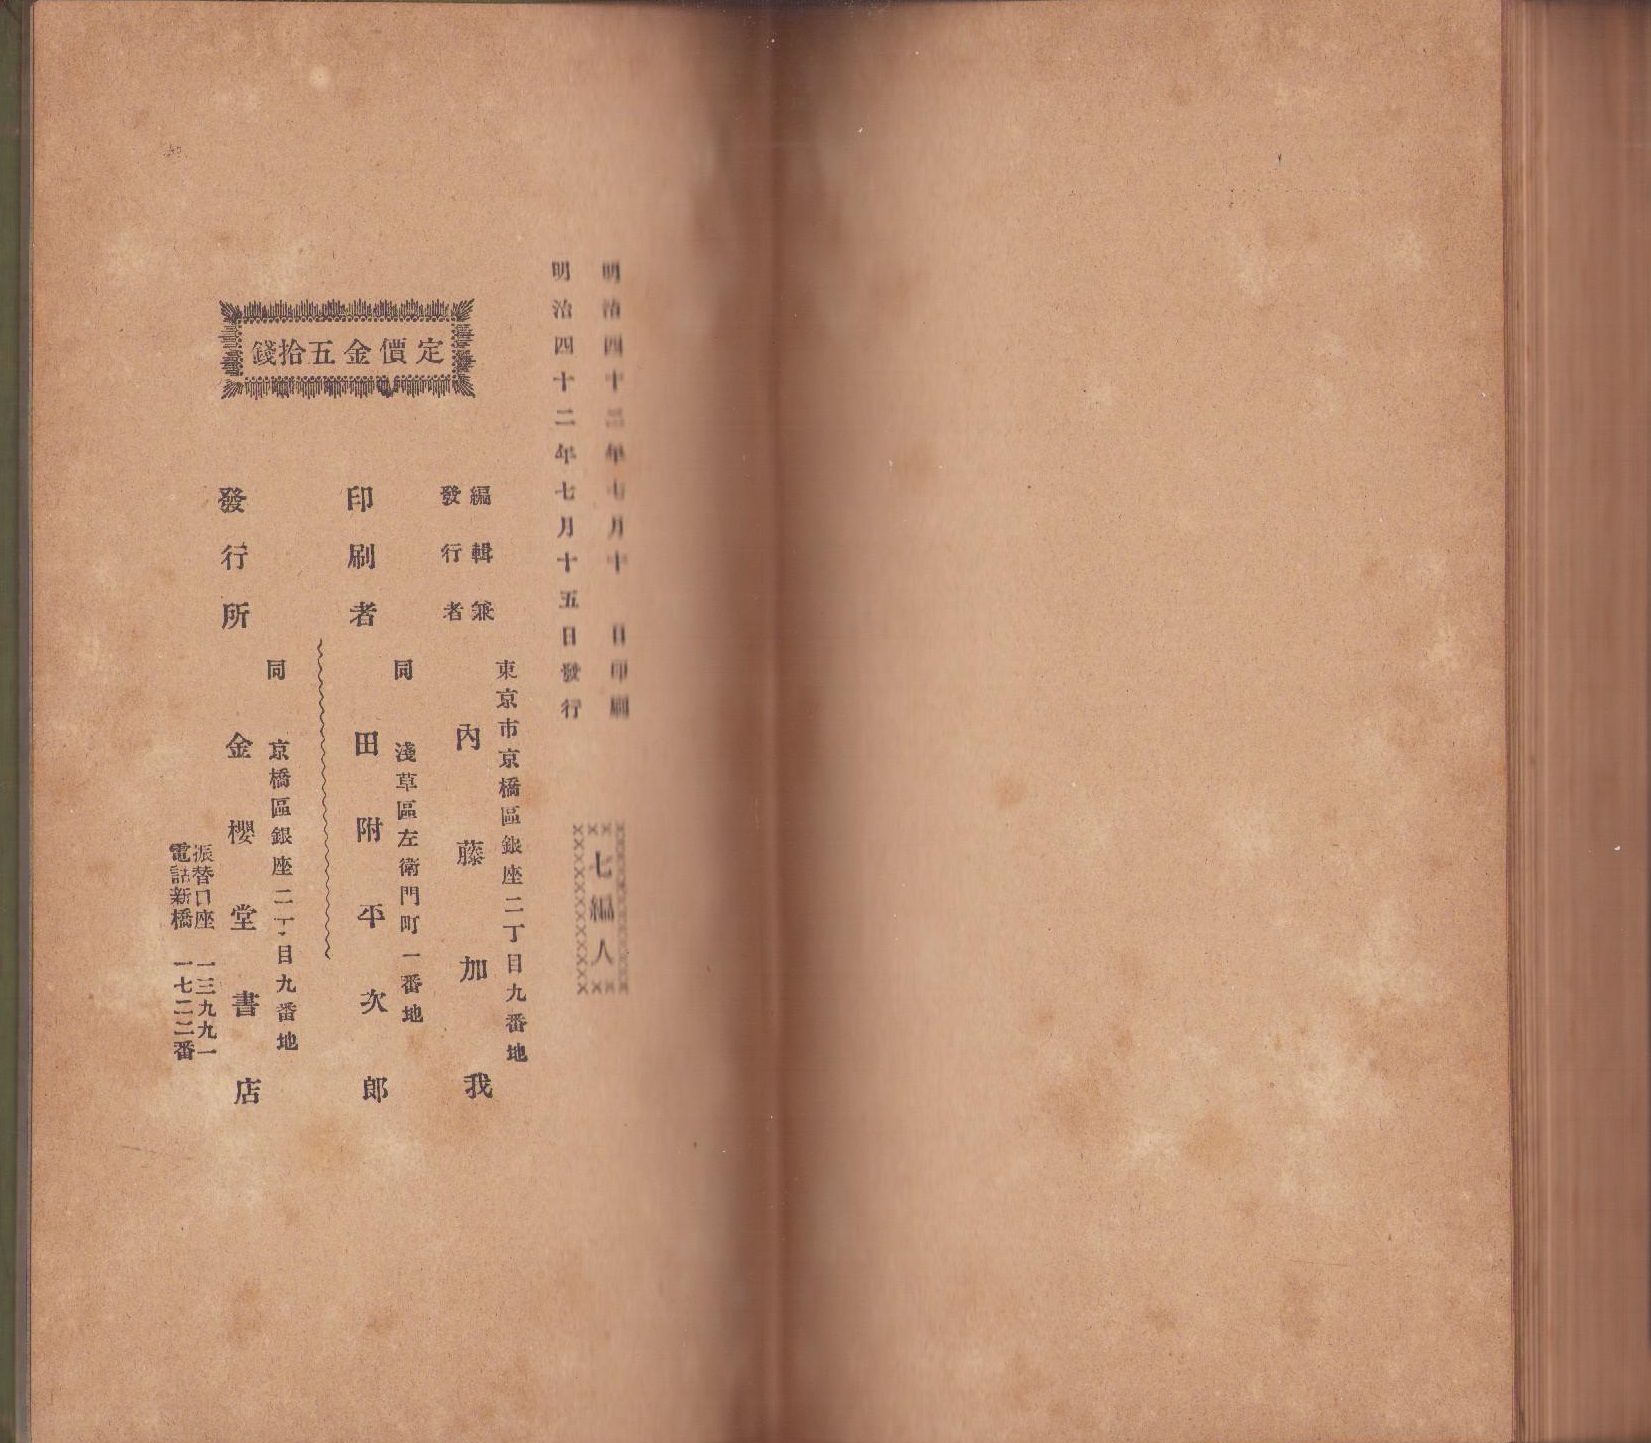 明治四十二年七月十日印刷
明治四十二年七月十五日發行
七編人
定價金五拾錢
編輯兼
發行者
東京市京橋區銀座二丁目九番地
內藤加我
印刷者
同 淺草區左衛門町一番地
田附平次郎
發行所
同 京橋區銀座二丁目九番地
金櫻堂書店
振替口座 一三九九一
電話新橋 一七二二番